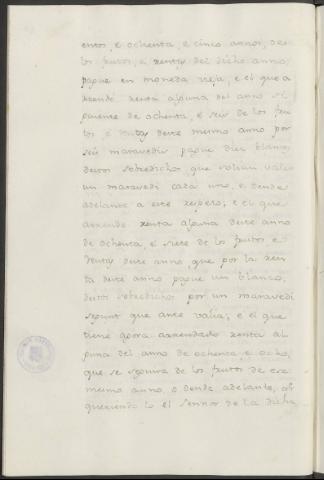 entos, e ochenta, e cinco annos, de
los frutos, e rentas del dicho anno,
pague en moneda vieja, e el que a
rrendó renta alguna del anno si
guiente de ochenta, e seis de los fru
tos, e rentas deste mesmo anno por
seis maravedis pague diez blancos
destos sobredichos que solian valer
un maravedi cada uno, e dende
adelante a este respeto; e el que
arrendo renta alguna deste anno
de ochenta, e siete de los frutos, e
rentas deste anno que por la ren
ta deste anno pague un blanco,
destos sobredichos por un maravedi
segunt que ante valia; e el que
tiene agora arrendado renta al
guna del anno de ochenta, e ocho,
que se seguira de los frutos de ese
mesmo anno, o dende adelante,
queriendo lo el sennor de la dicha